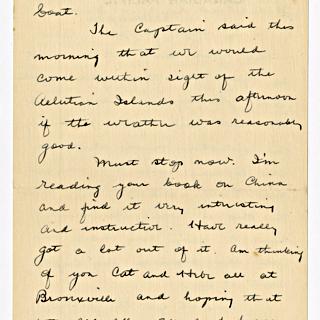 boat.
The Captain said this
morning that we would
come within sight of the
Aelutian Islands this afternoon
if the weather was reasonably
good.
Must stop now. I'm
reading your book on China
and find it very intrusting
and instructive. Have really
got a lot out of it. Am thinking
of you Cat and Hebe all at
Bronxville and hoping that